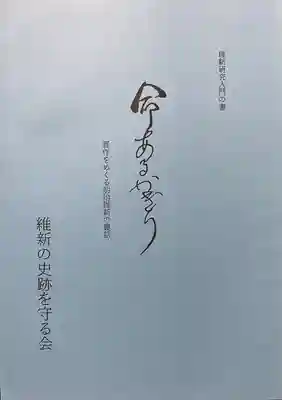 維新研究入門の書
命あるかぎり
晋作をめぐる明治維新の裏話
維新の史跡を守る会